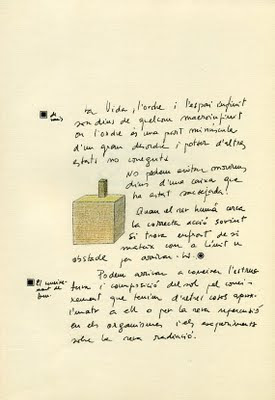 La Vida, l'ordre i l'espai infinit
són dins de quelcom macroinfinit
on l'ordre és una part minúscula
d'un gran desordre i potser d'altres
estats no coneguts
No podem evitar moure'ns
dins d'una caixa que
ha estat
Quan el ser humà cerca
la correcta acció sovint
Si troba enfront de si
mateix com a límit u
obstacle per arribar-hi.
El coneixe-
ment de
Podem arribar a conèixer l'estruc-
tura i composició del sol pel conei-
xement que tenim d'altres coses
a ell o per la seva repercussió
en els organismes i els experiments
sobre la seva radiació.